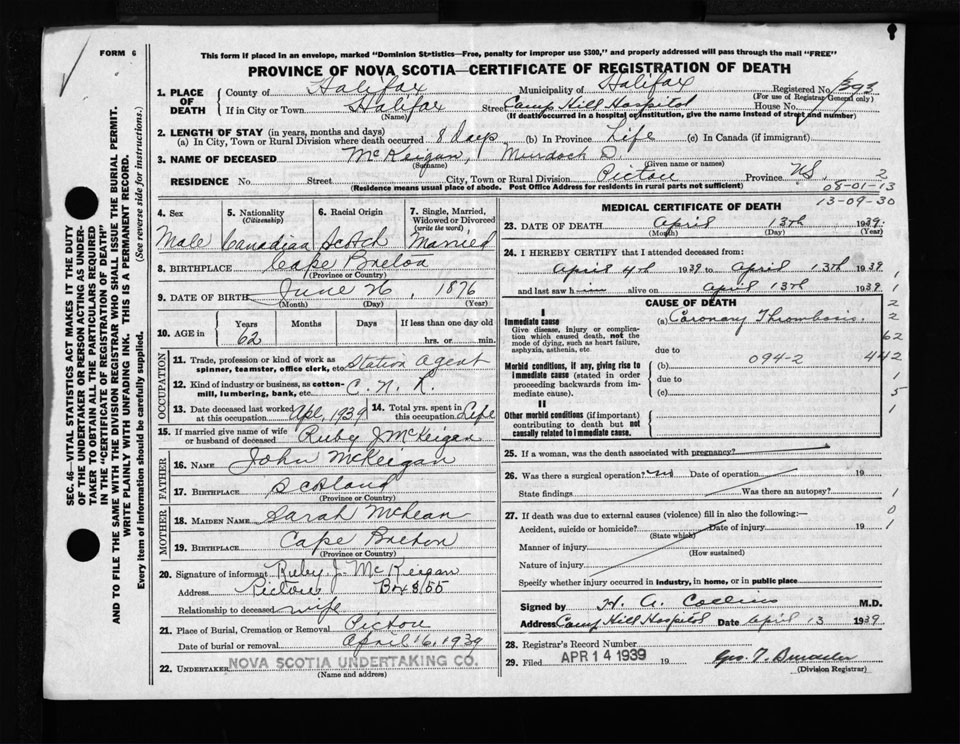 FORM 6
This form if placed in an envelope, marked "Dominion Statistics—Free, penalty for improper use $300," and properly addressed will pass through the mail "FREE"
PROVINCE OF NOVA SCOTIA—CERTIFICATE OF REGISTRATION OF DEATH
1. PLACE OF DEATH
County of Halifax Municipality of Halifax Registered No.
(For use of Registrar General only)
If in City or Town Halifax Street Camp Hill Hospital House No.
(Name) (If death occurred in a hospital or institution, give the name instead of street and number)
2. LENGTH OF STAY (in years, months and days)
(a) In City, Town or Rural Division where death occurred 8 days (b) In Province Life (c) In Canada (if immigrant)
3. NAME OF DECEASED McKeigan, Murdoch D.
(Surname) (Given name or names)
RESIDENCE No. Street City, Town or Rural Division Pictou Province N.S. 2
(Residence means usual place of abode. Post Office Address for residents in rural parts not sufficient)
08-01-13
13-09-30
SEC. 46—VITAL STATISTICS ACT MAKES IT THE DUTY
OF THE UNDERTAKER OR PERSON ACTING AS UNDER-
TAKER TO OBTAIN ALL THE PARTICULARS REQUIRED
IN THE "CERTIFICATE OF REGISTRATION OF DEATH"
AND TO FILE THE SAME WITH THE DIVISION REGISTRAR WHO SHALL ISSUE THE BURIAL PERMIT.
WRITE PLAINLY WITH UNFADING INK. THIS IS A PERMANENT RECORD.
Every item of information should be carefully supplied. (See reverse side for instructions.)
4. Sex
Male
5. Nationality
(Citizenship)
Canadian
6. Racial Origin
Scotch
7. Single, Married, Widowed or Divorced
(write the word)
Married
8. BIRTHPLACE Cape Breton
(Province or Country)
9. DATE OF BIRTH June 26, 1876
(Month) (Day) (Year)
10. AGE in Years Months Days If less than one day old
62 hrs. or min.
OCCUPATION
11. Trade, profession or kind of work as
spinner, teamster, office clerk, etc. Station Agent
12. Kind of industry or business, as cotton-
mill, lumbering, bank, etc. C. N. R.
13. Date deceased last worked at this occupation Apl, 1939
14. Total yrs. spent in this occupation Life
15. If married give name of wife
or husband of deceased Ruby J McKeigan
FATHER
16. NAME John McKeigan
17. BIRTHPLACE Scotland
(Province or Country)
MOTHER
18. MAIDEN NAME Sarah McLean
19. BIRTHPLACE Cape Breton
(Province or Country)
20. Signature of informant Ruby J. McKeigan
Address Pictou Box 355
Relationship to deceased wife
21. Place of Burial, Cremation or Removal Pictou
Date of burial or removal April 16, 1939
22. UNDERTAKER NOVA SCOTIA UNDERTAKING CO.
(Name and address)
MEDICAL CERTIFICATE OF DEATH
23. DATE OF DEATH April 13th 1939
(Month) (Day) (Year)
24. I HEREBY CERTIFY that I attended deceased from:
April 4th 1939 to April 13th 1939
and last saw h im alive on April 13th 1939
CAUSE OF DEATH
I
Immediate cause
Give disease, injury or complica-
tion which caused death, not the
mode of dying, such as heart failure,
asphyxia, asthenia, etc
(a) Coronary Thrombosis
due to
Morbid conditions, if any, giving rise to
immediate cause (stated in order
proceeding backwards from im-
mediate cause).
(b) 094-2
due to
(c)
II
Other morbid conditions (if important)
contributing to death but not
causally related to immediate cause.
1
1
2
2
62
442
1
5
1
25. If a woman, was the death associated with pregnancy?
26. Was there a surgical operation? no Date of operation 19
State findings Was there an autopsy?
27. If death was due to external causes (violence) fill in also the following:—
Accident, suicide or homicide? Date of injury 19
(State which)
Manner of injury
(How sustained)
Nature of injury
Specify whether injury occurred in industry, in home, or in public place
1
0
1
Signed by H. A. Collins M.D.
Address Camp Hill Hospital Date April 13 1939
28. Registrar's Record Number
29. Filed APR 14 1939 19 Geo. T.
(Division Registrar)